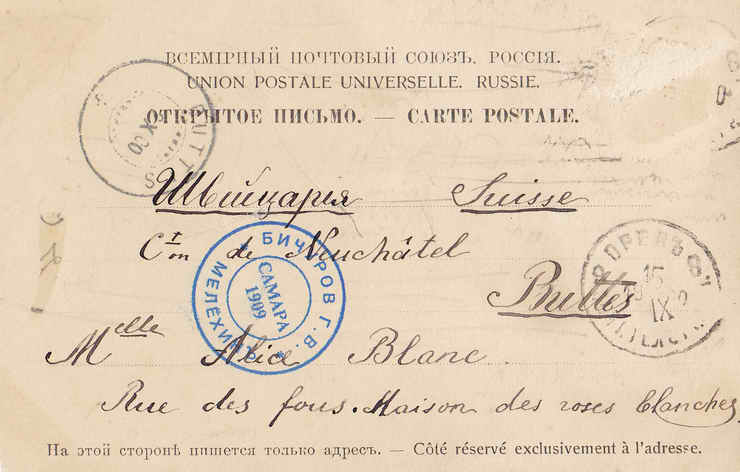 ВСЕМІРНЫЙ ПОЧТОВЫЙ СОЮЗЪ. РОССІЯ.
UNION POSTALE UNIVERSELLE. RUSSIE.
ОТКРЫТОЕ ПИСЬМО. — CARTE POSTALE.
BUTTES
IX 00
Швейцарія Suisse
Cton de Neuchâtel
БИЧУРОВ Г. В.
САМАРА
1909
ОРЕЛЪ
15
IX
Buttes
Melle Alice Blanc
Rue des fours. Maison des roses blanches
На этой сторонѣ пишется только адресъ. — Côté réservé exclusivement à l'adresse.